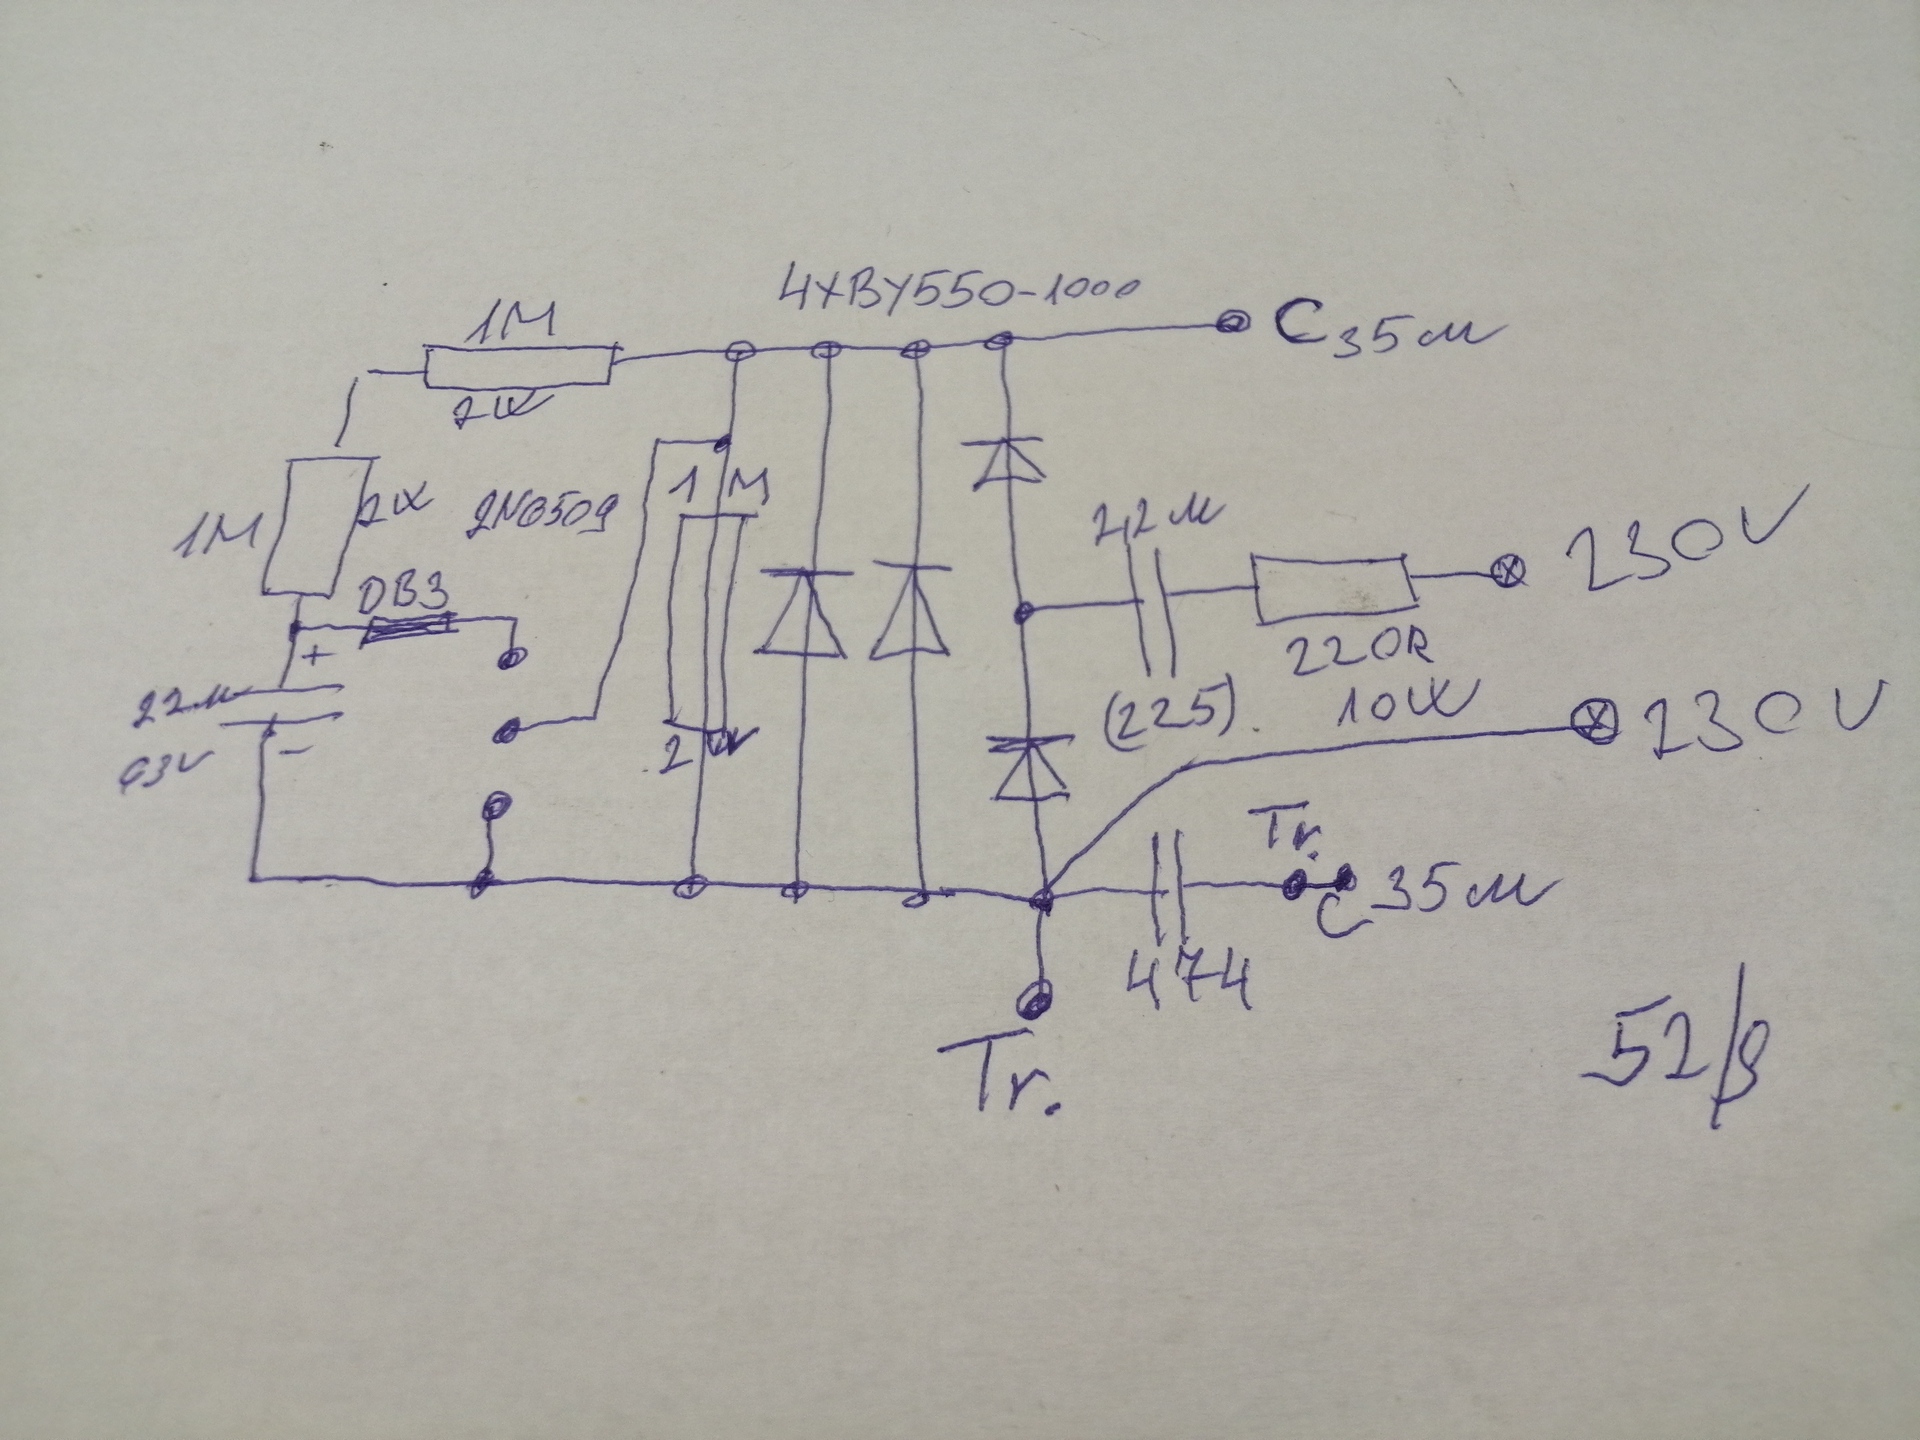 4XBY550-1000
1M
C 35µ
2W
1M
2W
2N6509
1 M
2,2µ
230V
DB3
+
220R
22µ
(225)
10W
230V
63V
-
2W
Tr.
C 35µ
474
Tr.
52/8